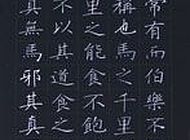 常有而伯樂不
稱也馬之千里
里之能食不飽
不以其道食之
真無馬邪其真